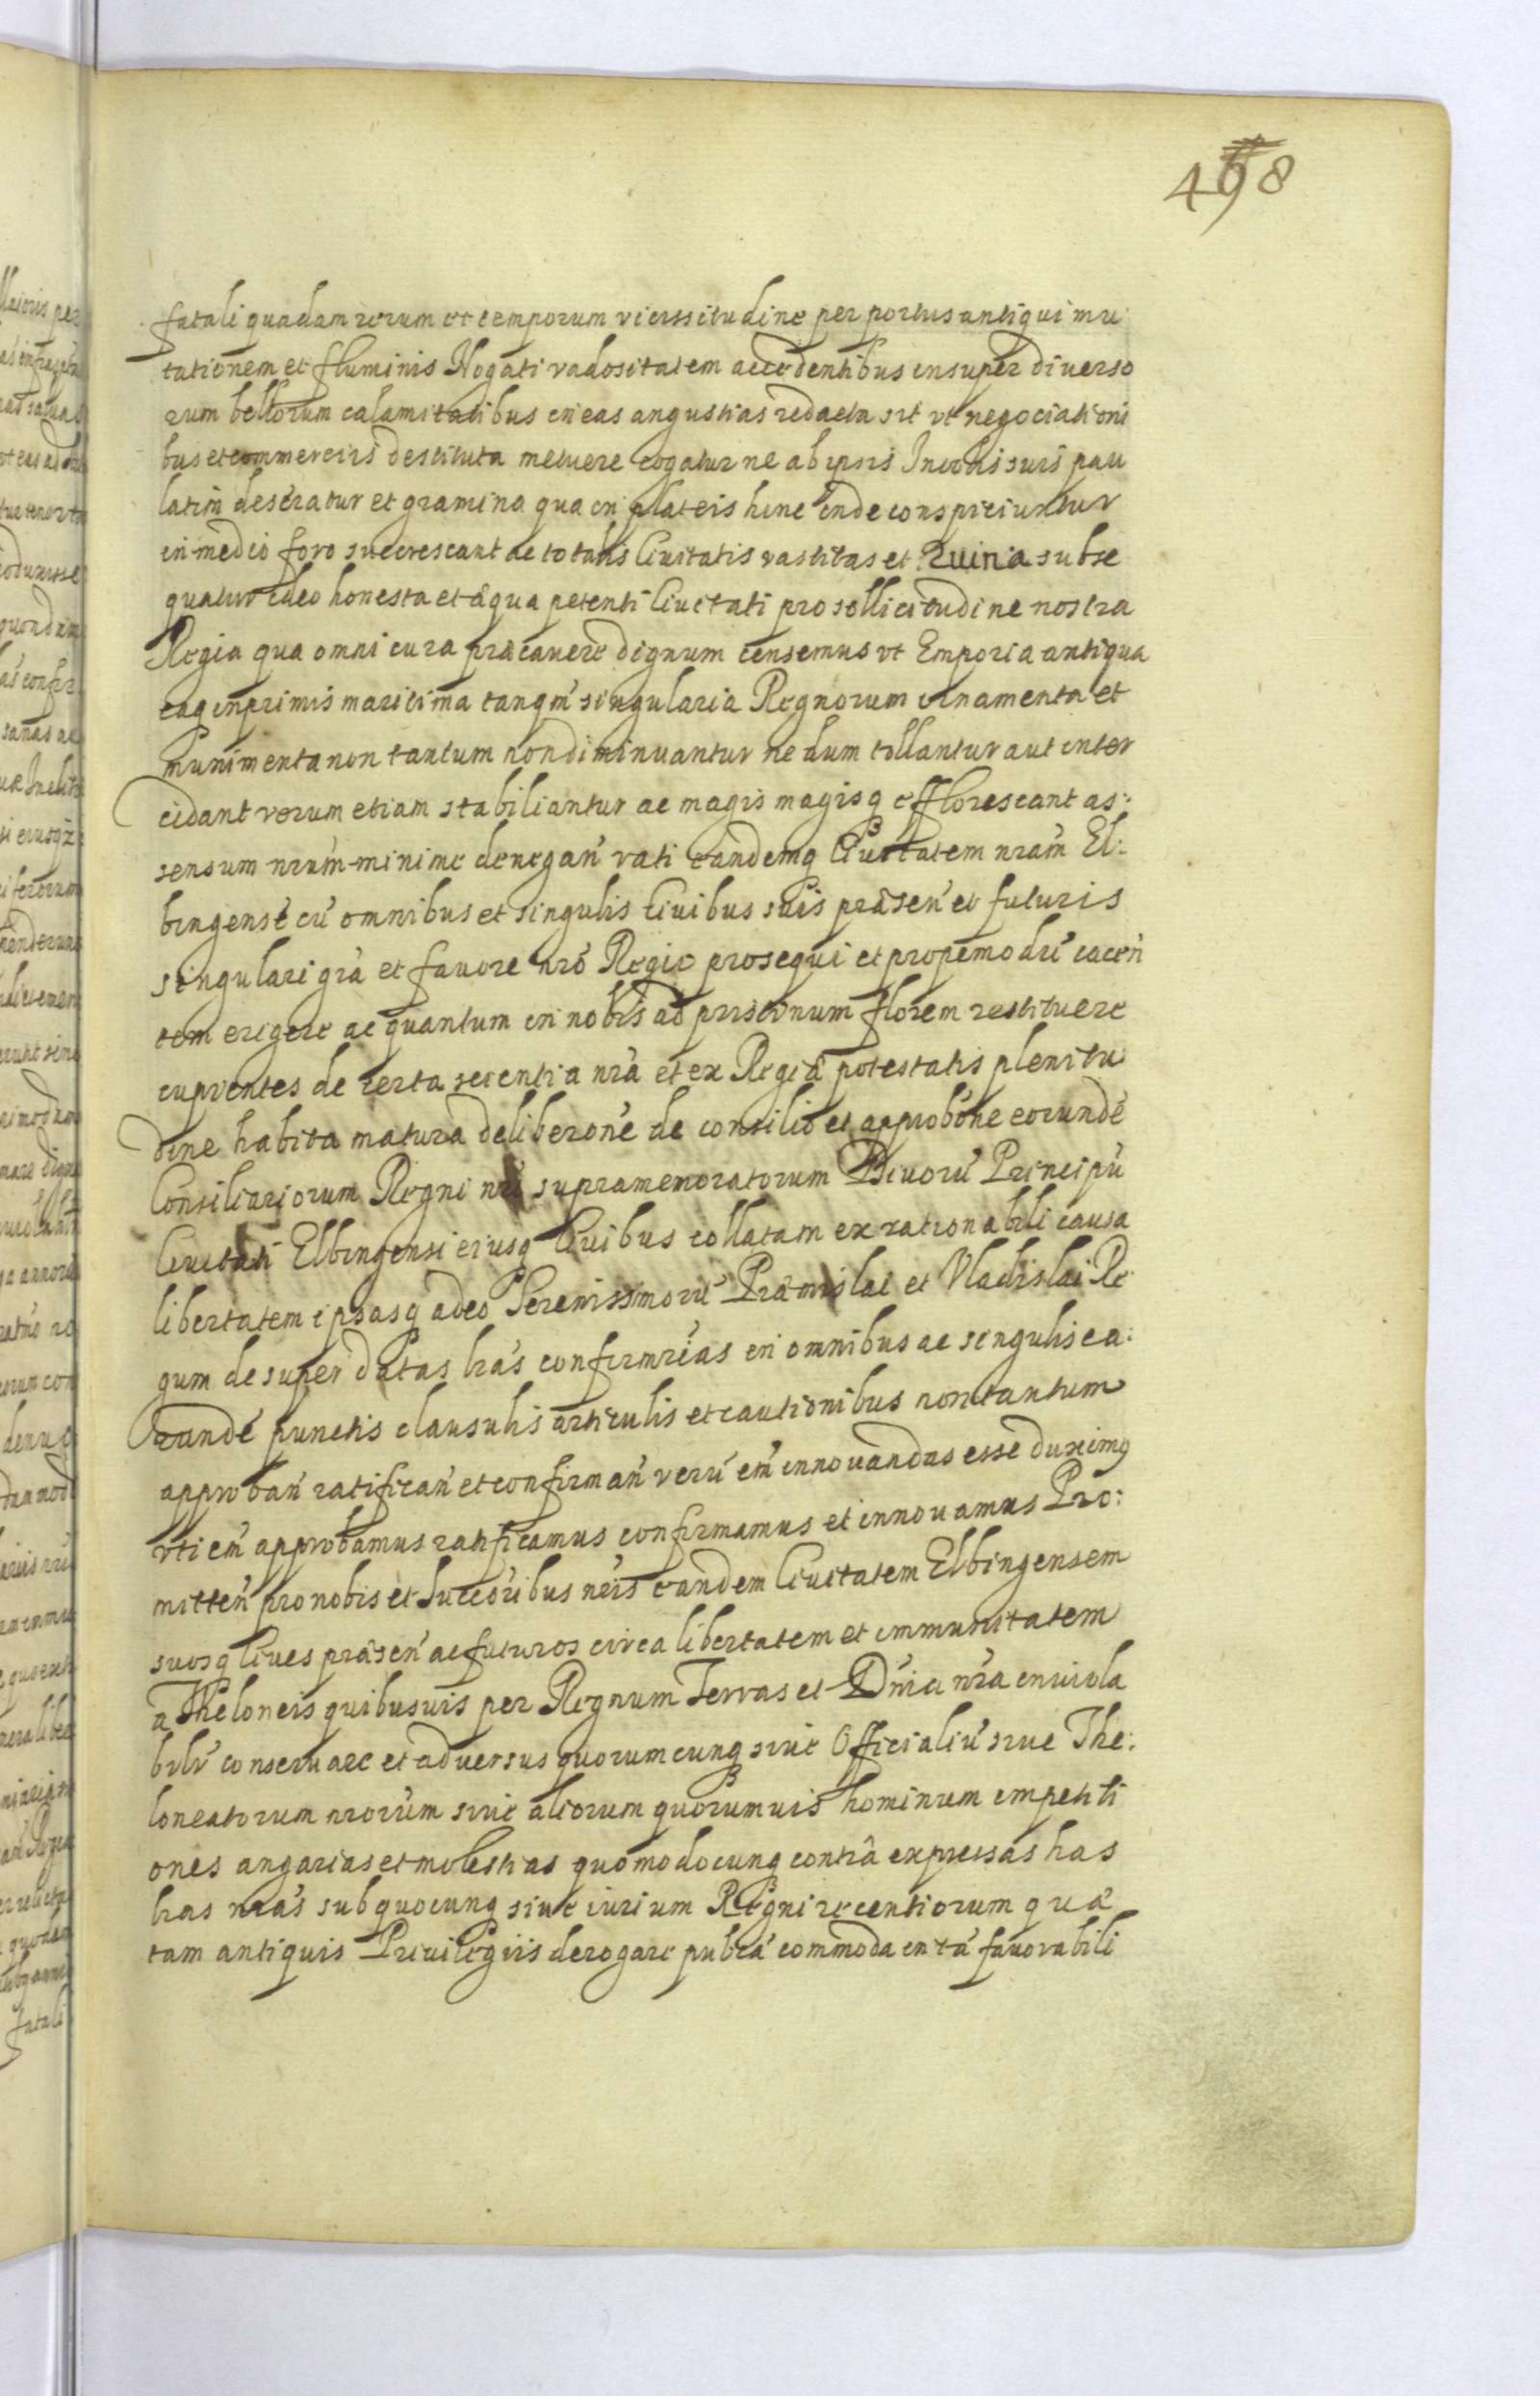 498
fatali quadam rerum et temporum vicissitudine per portus antiqui mu
tationem et fluminis Nogati vadositatem accedentibus insuper diverso
rum bellorum calamitatibus in eas angustias redacta sit vt negociationi
bus et commerciis destituta metuere cogatur ne ab ipsis Incolis suis pau
latim deseratur et gramina qua in plateis hinc inde conspiciuntur
in medio foro succrescant ac totalis Ciuitatis vastitas et Ruina subse
quatur ideo honesta et æqua petenti Ciuitati pro sollicitudine nostra
Regia qua omni cura præcavere dignum censemus vt Emporia antiqua
eaq inprimis maritima tanqm̃ singularia Regnorum ornamenta et
munimenta non tantum non diminuantur ne dum tollantur aut inter
cidant verum etiam stabiliantur ac magis magisq efflorescant as:
sensum nrum̃ minime denegan̄ rati eandemq Ciuitatem nram̃ El:
bingensē cū omnibus et singulis Ciuibus suis præsen̄ et futuris
singulari grā et favore nrō Regio prosequi et propemodū iacen̄
tem erigere ac quantum in nobis ad pristinum florem restituere
cupientes de certa scientia nrā et ex Regiâ potestatis plenitu
dine habita matura deliberōne de consilio et approbōne eorundē
Consiliariorum Regni nrī supramemoratorum Divorū Principū
Ciuitati Elbingensi eiusq Ciuibus collatam ex rationabili causa
libertatem ipsasq adeo Serenissimorū Præmislai et Vladislai Re
gum desuper datas lrās confirmrīas in omnibus ac singulis ea:
rundē punctis clausulis articulis et cautionibus non tantum
approban̄ ratifican̄ et confirman̄ verū em̄ innouandas esse duximq
vti em̄ approbamus ratificamus confirmamus et innouamus Pro:
mitten̄ pro nobis et Succoribus nrīs eandem Ciuitatem Elbingensem
suosq Ciues præsen̄ ac futuros circa libertatem et immunitatem
a Theloneis quibusuis per Regnum Terras et Dn̄ia nrā inuiola
bilr̄ conseruare et adversus quorumcunq siue Officialiū siue The:
loneatorum nrorūm siue aliorum quorumuis hominum impetiti
ones angarias et molestias quomodocunq contrâ expressas has
lras nrās sub quocunq siue iurium Regni recentiorum quæ
tam antiquis Priuilegiis derogare pubcā commoda in tā fauorabili